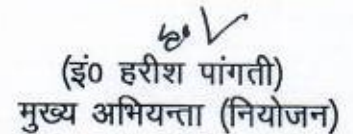 (इं0 हरीश पांगती)
मुख्य अभियन्ता (नियोजन)